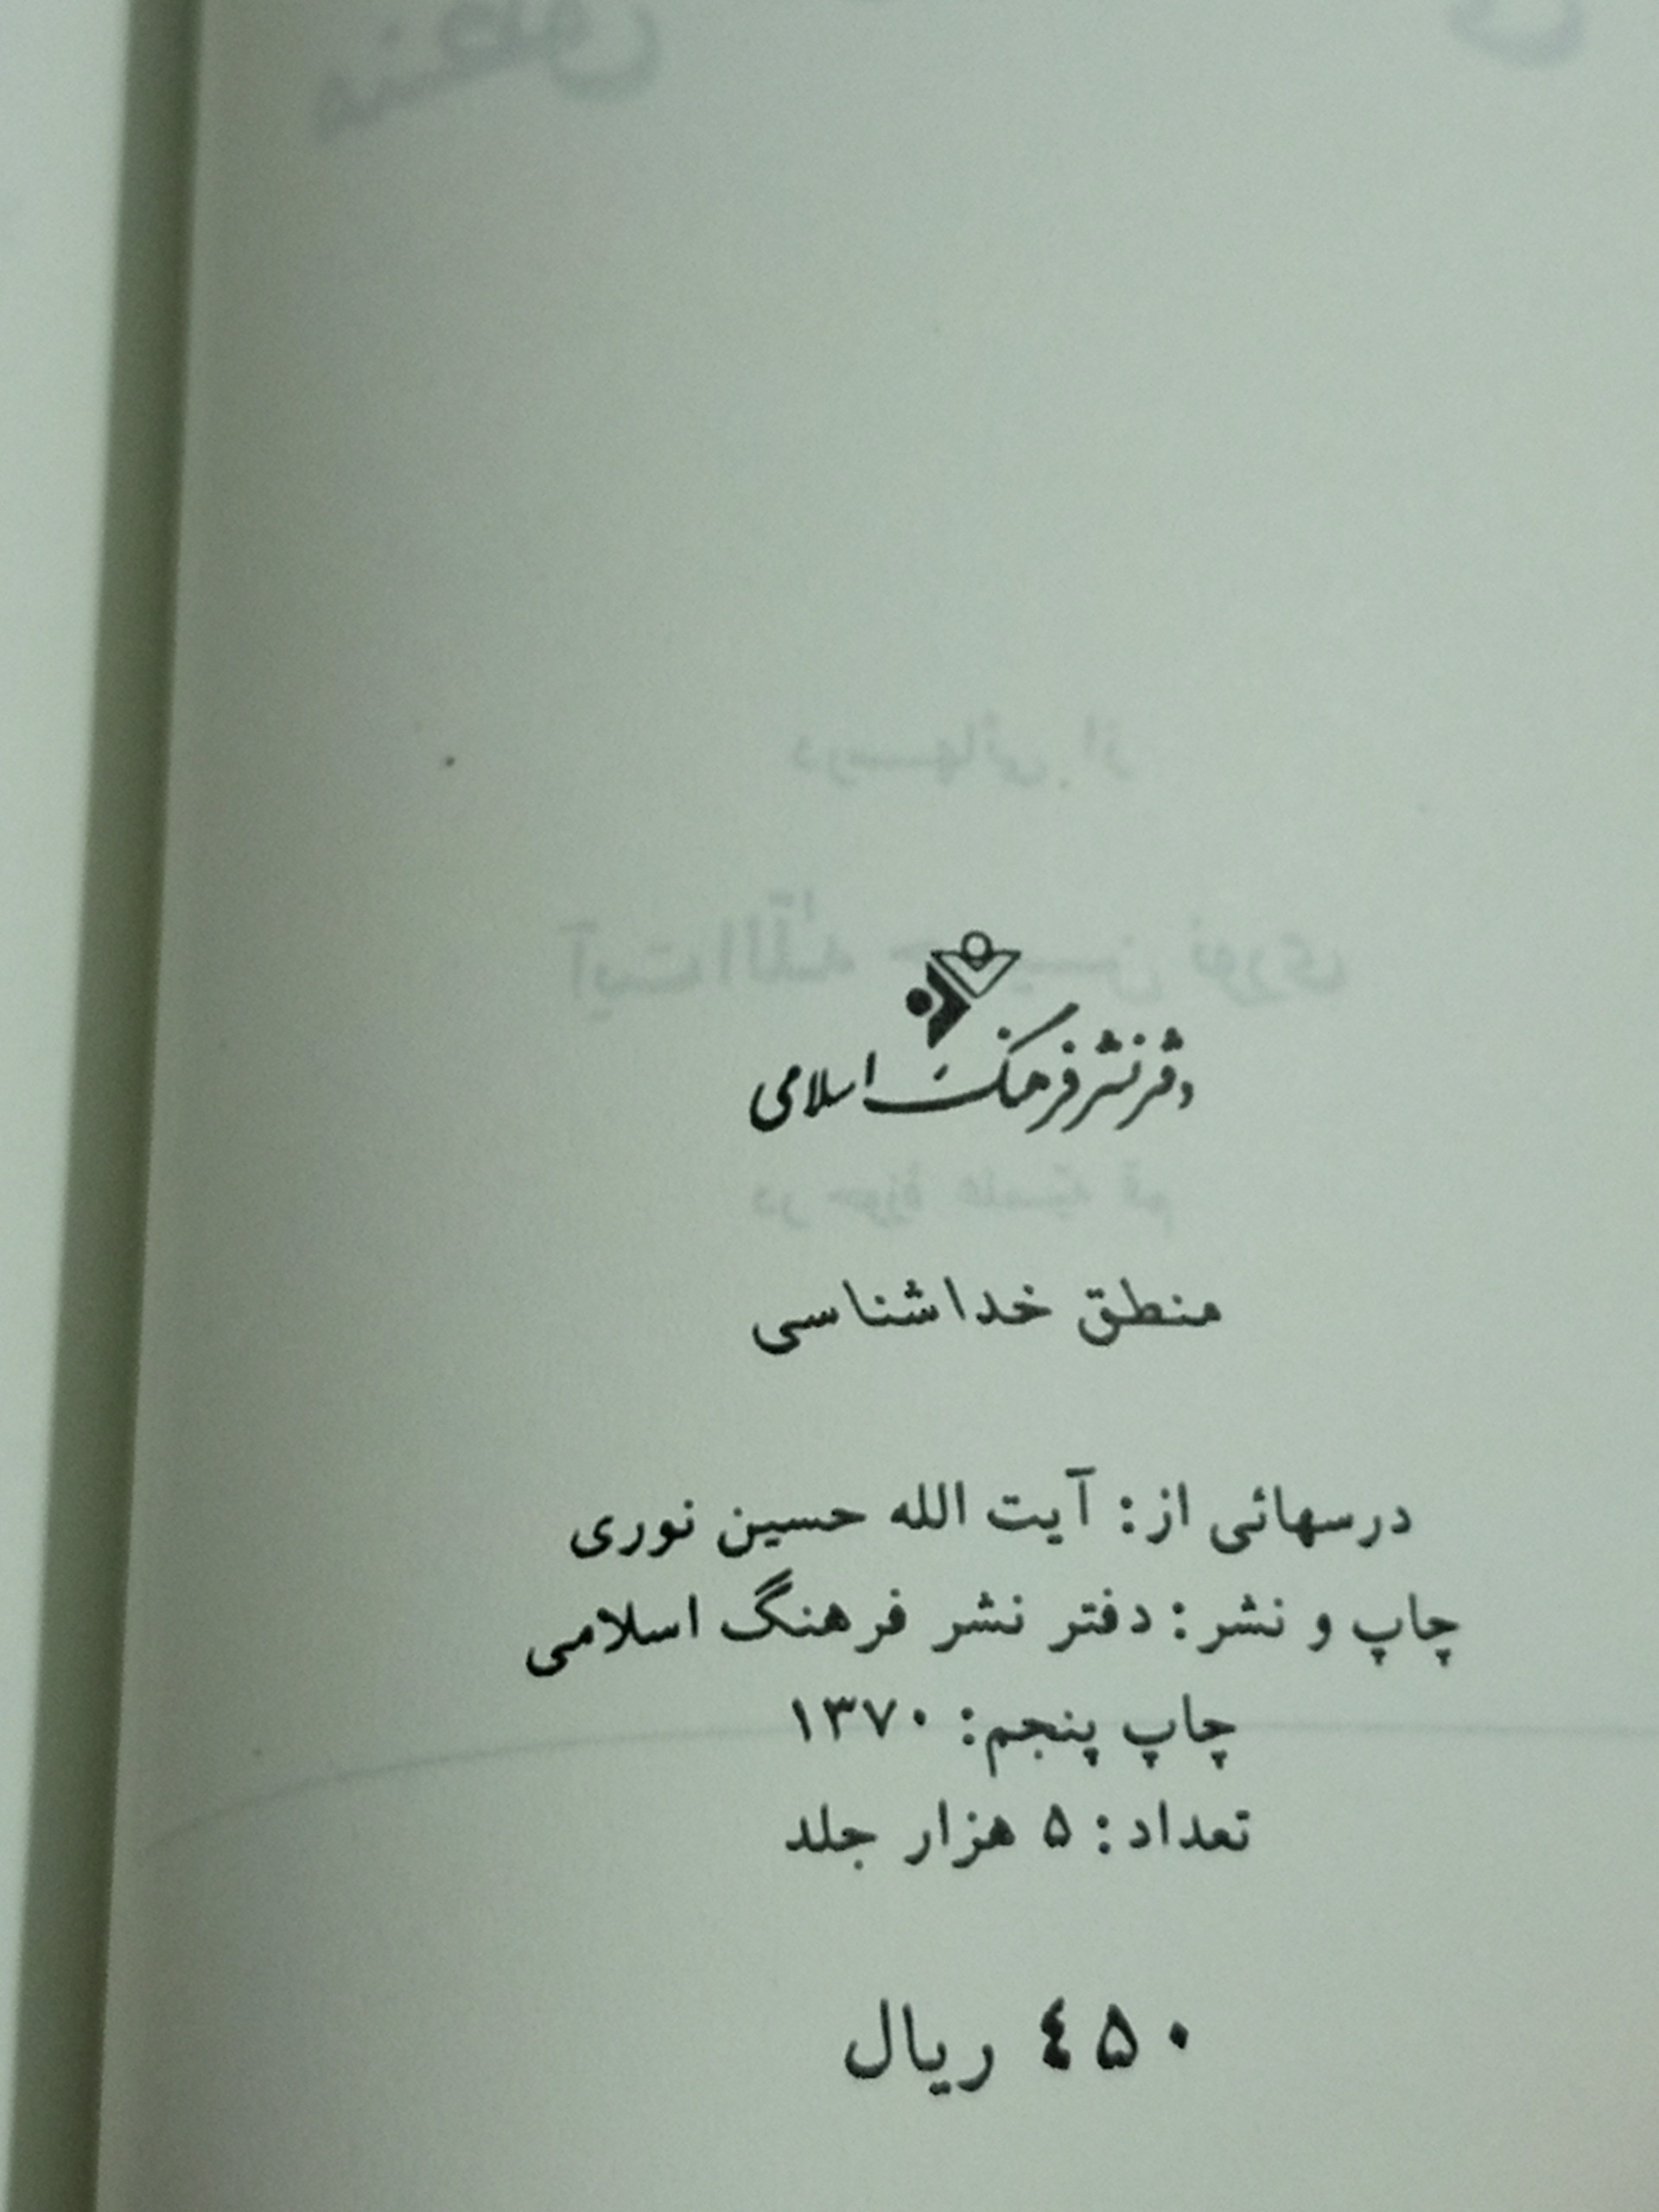 دفتر نشر فرهنگ اسلامی
منطق خداشناسی
درسهائی از: آیت الله حسین نوری
چاپ و نشر: دفتر نشر فرهنگ اسلامی
چاپ پنجم: ۱۳۷۰
تعداد: ۵ هزار جلد
۴۵۰ ریال